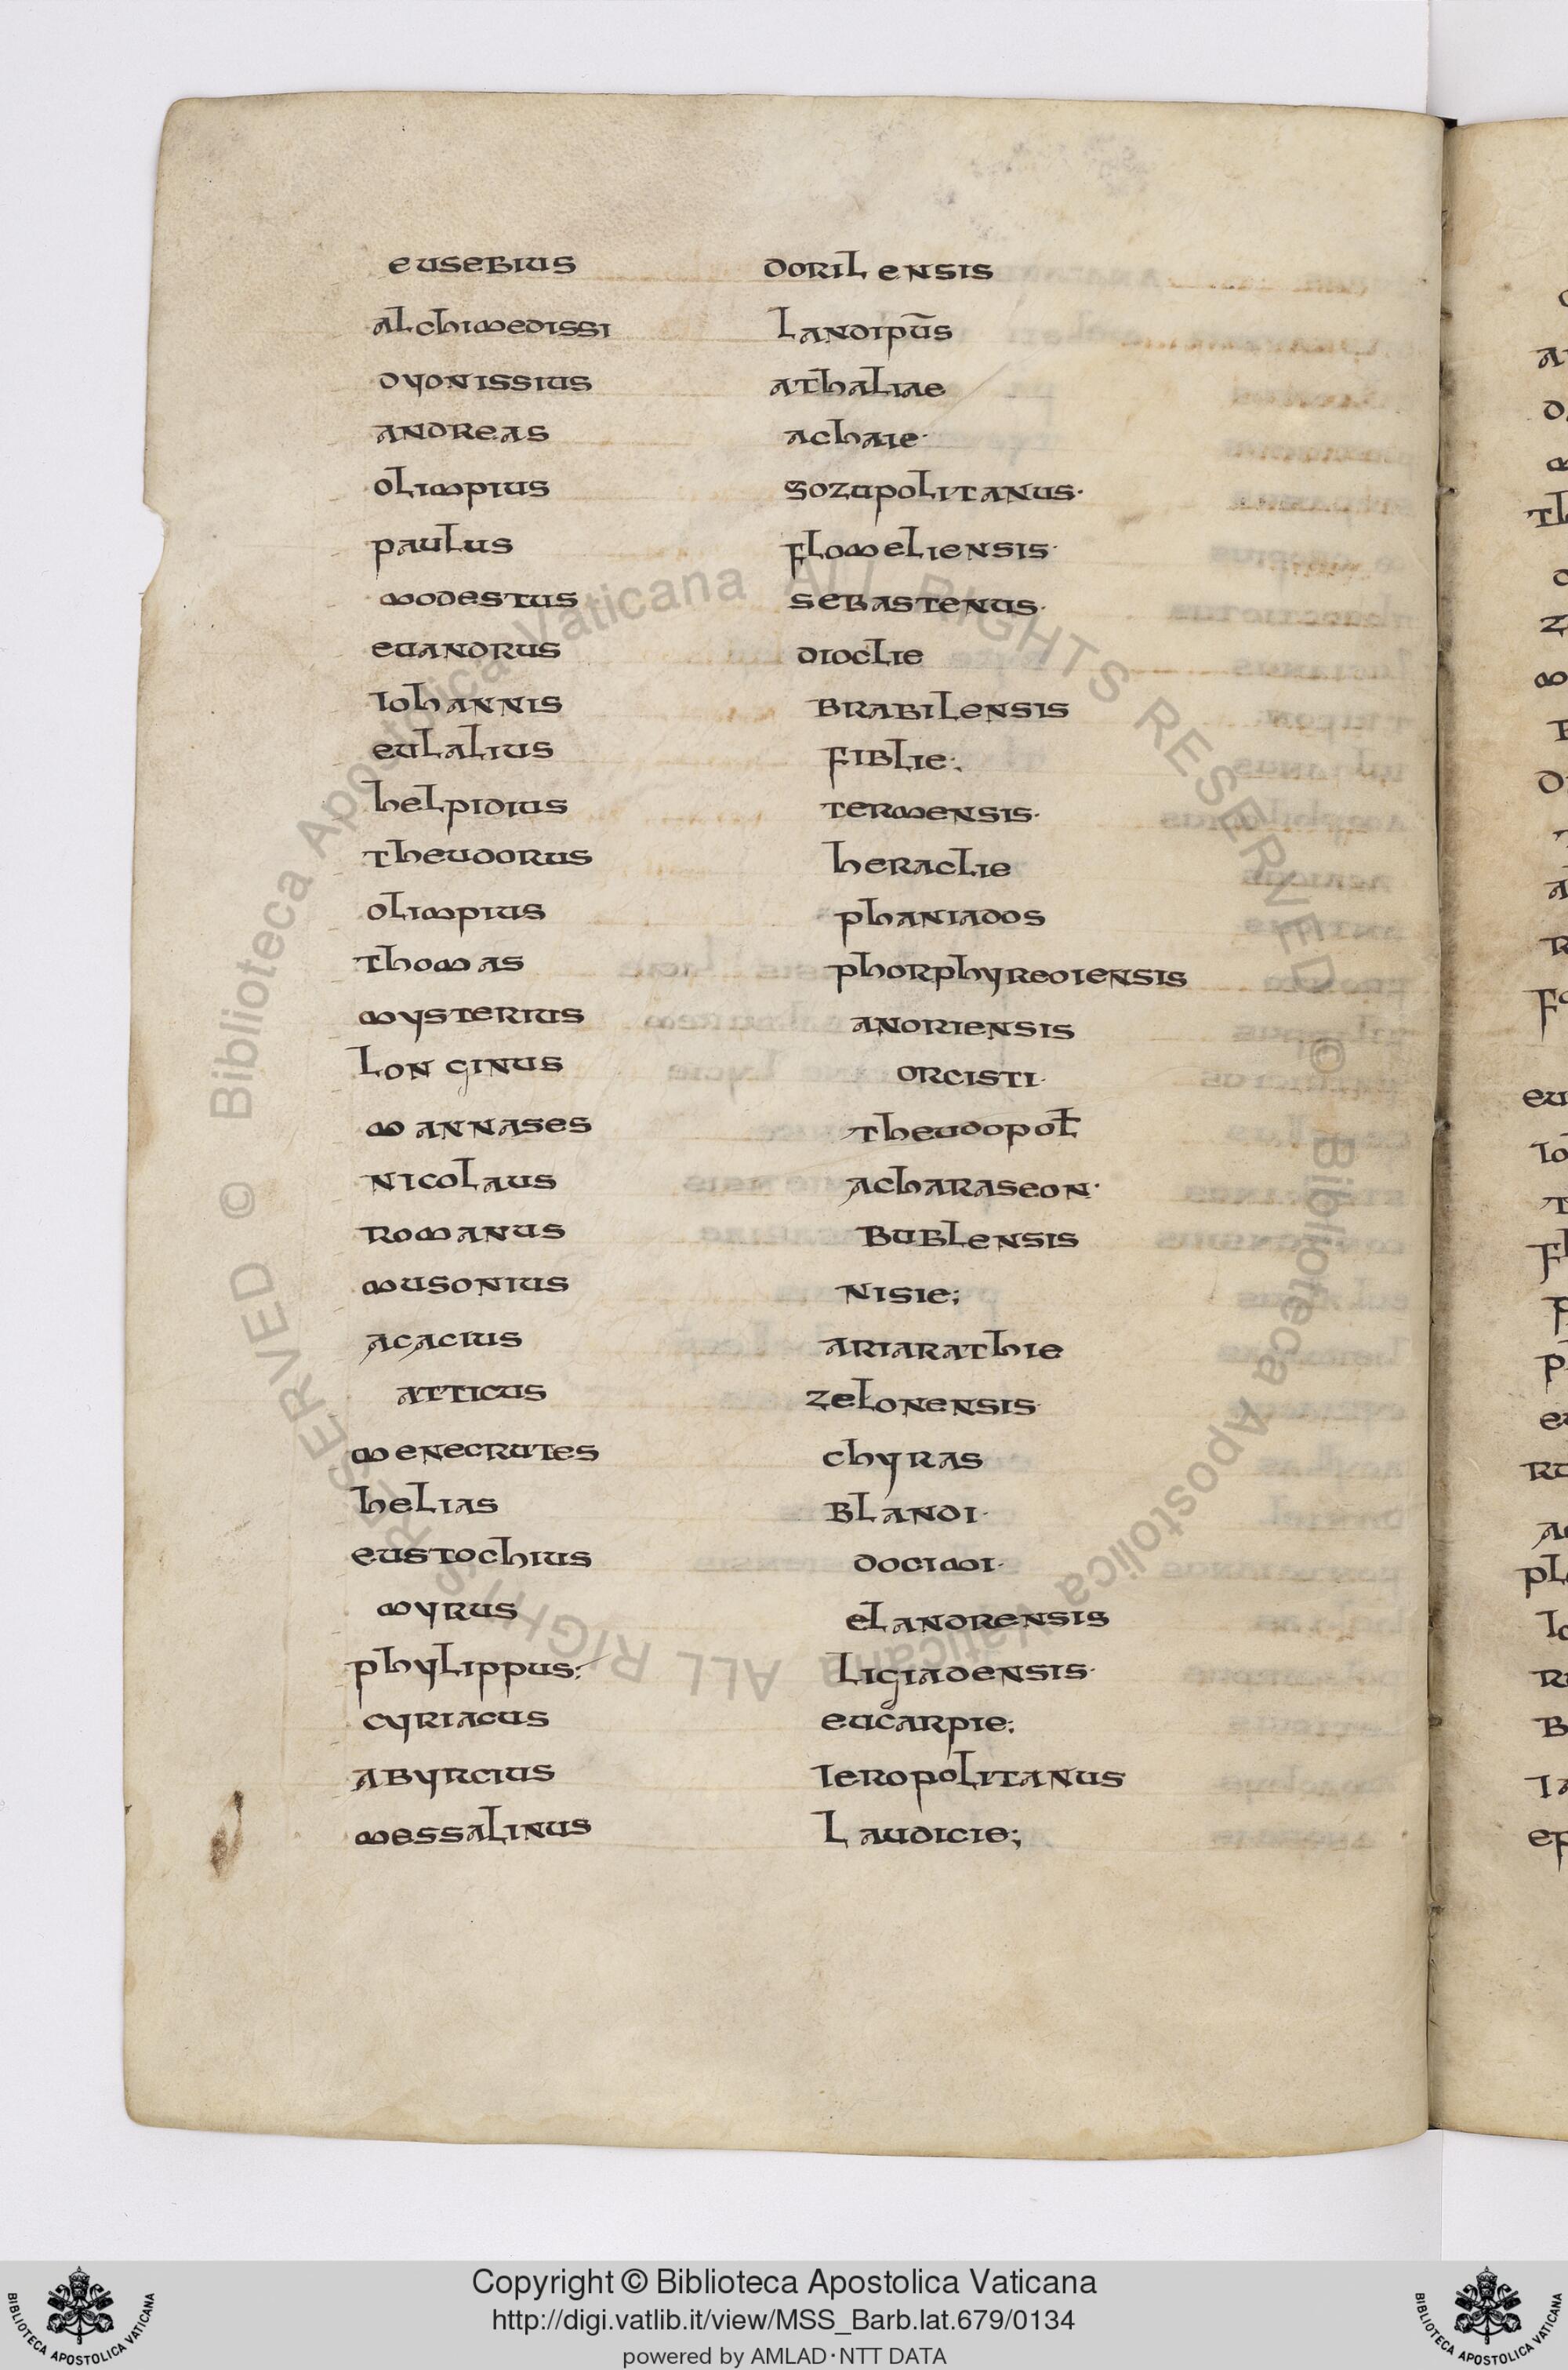 eusebius dorilensis
alchimedissi landipūs
dyonissius athaliae
andreas achaie·
olimpius sozupolitanus·
paulus flomeliensis·
modestus sebastenus·
euandrus dioclie
iohannis brabilensis
eulalius fiblie;
helpidius termensis·
theudorus heraclie
olimpius phaniados
thomas phorphyreoiensis
mysterius anoriensis
longinus orcisti·
mannases theudopoł
nicolaus acharaseon·
romanus bublensis
musonius nisie;
acacius ariarathie
atticus zelonensis
menecrutes chyras
helias blandi·
eustochius docimi·
myrus elandrensis
phylippus; ligiadensis·
cyriacus eucarpie;
abyrcius ieropolitanus
messalinus laudicie;
© Biblioteca Apostolica Vaticana ALL RIGHTS RESERVED © Biblioteca Apostolica Vaticana ALL RIGHTS RESERVED
Copyright © Biblioteca Apostolica Vaticana
http://digi.vatlib.it/view/MSS_Barb.lat.679/0134
powered by AMLAD·NTT DATA
BIBLIOTECA APOSTOLICA VATICANA
BIBLIOTECA APOSTOLICA VATICANA